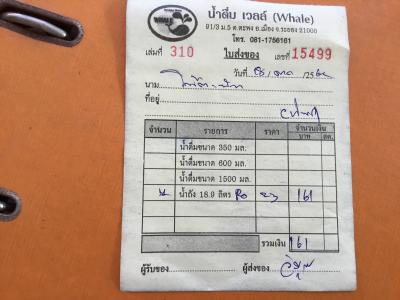 WHALE
น้ำดื่ม เวลล์ (Whale)
91/3 ม.5 ต.ตะพง อ.เมือง จ.ระยอง 21000
โทร. 081-1756161
เล่มที่ 310 ใบส่งของ เลขที่ 15499
วันที่
นาม
ที่อยู่
จำนวน รายการ ราคา จำนวนเงิน
บาท สต.
น้ำดื่มขนาด 350 มล.
น้ำดื่มขนาด 600 มล.
น้ำดื่มขนาด 1500 มล.
น้ำถัง 18.9 ลิตร Ro 161
รวมเงิน 161
ผู้รับของ ผู้ส่งของ